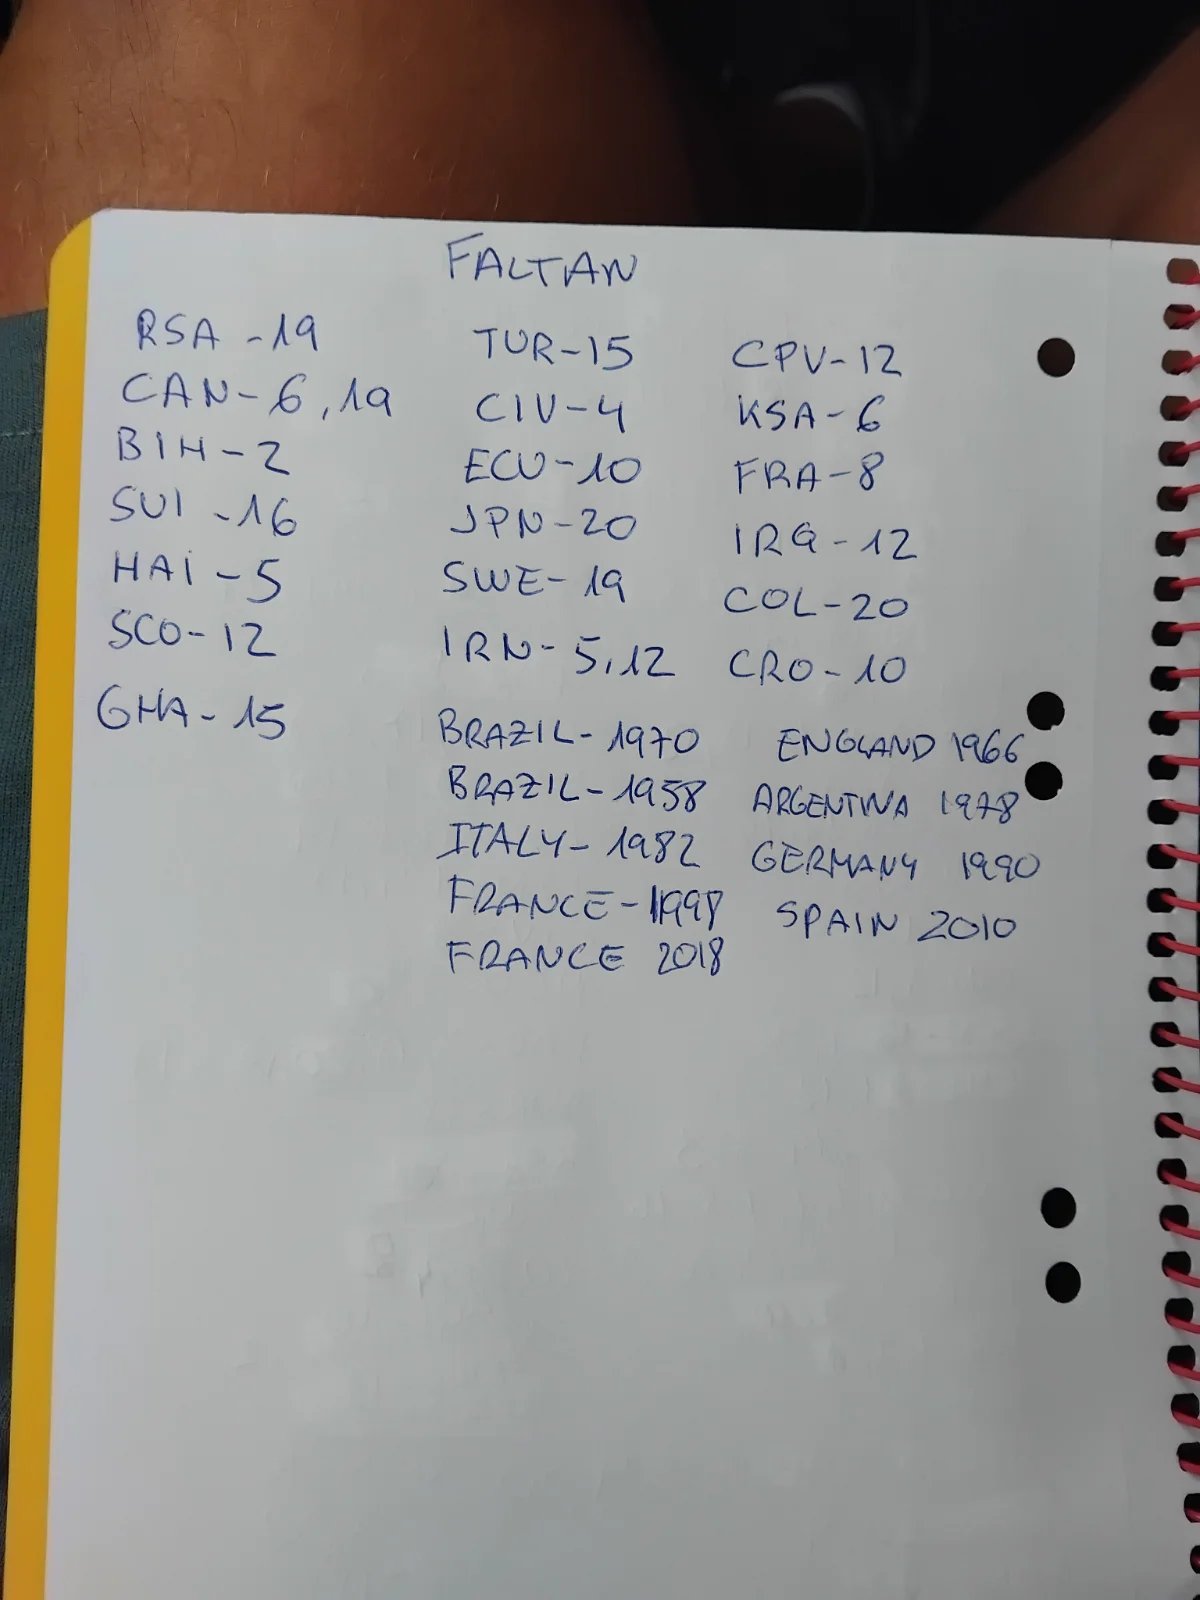 FALTAN
RSA - 19
CAN - 6, 19
BIH - 2
SUI - 16
HAI - 5
SCO - 12
GHA - 15
TUR - 15
CIV - 4
ECU - 10
JPN - 20
SWE - 19
IRN - 5, 12
CPV - 12
KSA - 6
FRA - 8
IRQ - 12
COL - 20
CRO - 10
BRAZIL - 1970
BRAZIL - 1958
ITALY - 1982
FRANCE - 1998
FRANCE 2018
ENGLAND 1966
ARGENTINA 1978
GERMANY 1990
SPAIN 2010